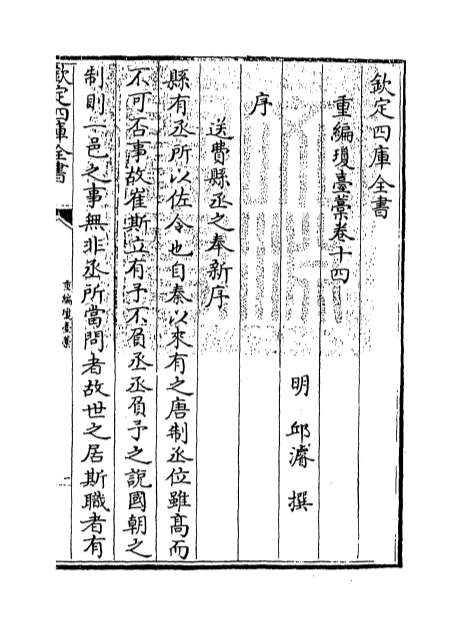 欽定四庫全書
重編瓊臺藁卷十四
明 邱濬 撰
序
送費縣丞之奉新序
縣有丞所以佐令也自秦以來有之唐制丞位雖髙而
不可否事故崔斯立有予不負丞丞負予之説國朝之
制則一邑之事無非丞所當問者故世之居斯職者有
欽定四庫全書
重編瓊臺藁
一